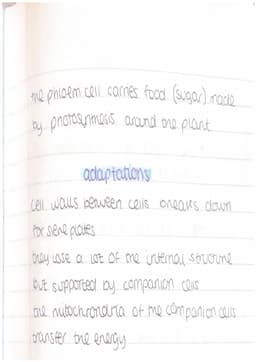 the phloem cell carries food (sugar) made
by photosynthesis around the plant
adaptations
cell walls between cells breaks down
for sieve plates
they lose a lot of the internal structure
but supported by companion cells
the mitochrondria of the companion cells
transfer the energy